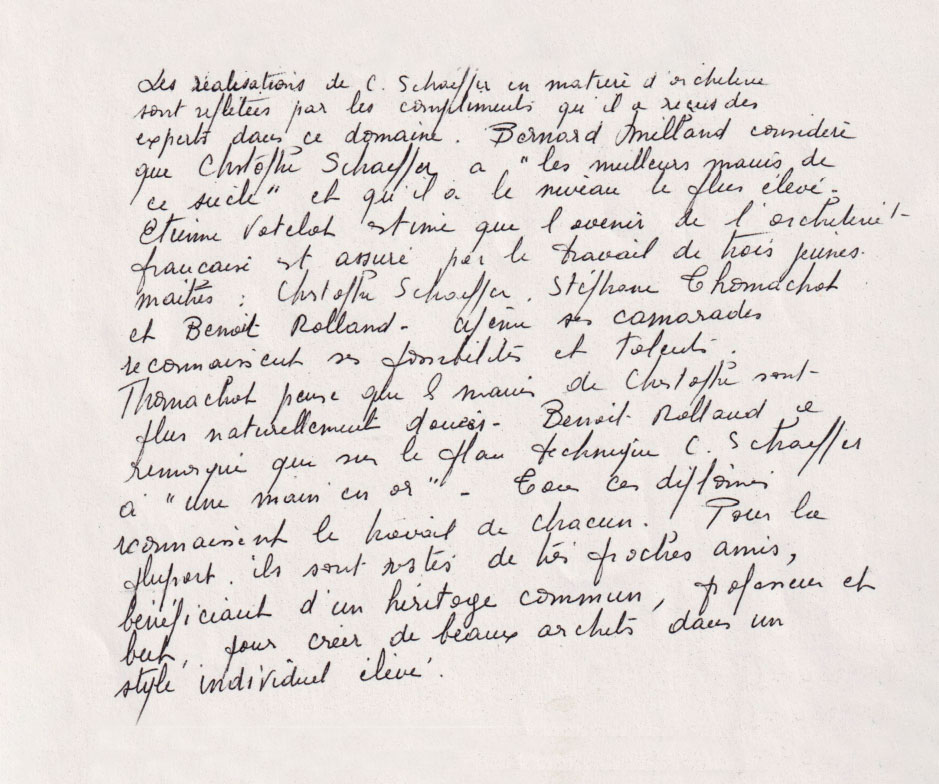 Les réalisations de C. Schaeffer en matière d'archeterie
sont reflétées par les compliments qu'il a reçus des
experts dans ce domaine. Bernard Millant considère
que Christophe Schaeffer a "les meilleurs mains de
ce siècle" et qu'il a le niveau le plus élevé.
Etienne Vatelot estime que l'avenir de l'archeterie
française est assuré par le travail de trois jeunes
maitres : Christophe Schaeffer, Stéphane Thomachot
et Benoit Rolland - même ses camarades
reconnaissent ses possibilités et talents.
Thomachot pense que les mains de Christophe sont
plus naturellement douées - Benoit Rolland a
remarqué que sur le plan technique C. Schaeffer
a "une main en or" - Tous ces diplômés
reconnaissent le travail de chacun. Pour la
plupart, ils sont restés de très proches amis,
bénéficiant d'un héritage commun, professeur et
but, pour créer de beaux archets dans un
style individuel élevé.